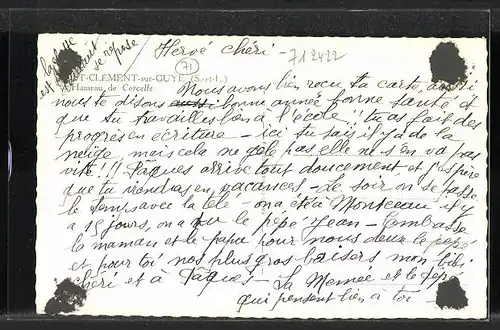 Hervé chéri - 712422
71
ST-CLÉMENT-sur-GUYE (S.-et-L.)
Hameau de Corcelle
Nous avons bien reçu ta carte, aussi
nous te disons bonne année bonne santé et
que tu travailles bien à l'école !! tu as fait des
progrès en écriture - ici tu sais il y a de la
neige, mais cela ne gèle pas elle ne s'en va pas
vite !!! Pâques arrive tout doucement et j'espère
que tu viendras en vacances - le soir on se passe
le temps avec la télé - on a été à Montceau il y
a 15 jours, on a vu le pépé Jean - Embrasse
la maman et le papa pour nous deux le pépé
et pour toi nos plus gros baisers mon bibi
chéri et à Pâques - La Memée et le pépé
qui pensent bien à toi -